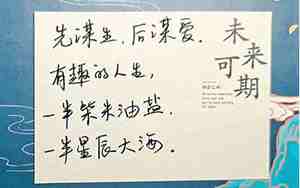 先谋生，后谋爱．
有趣的人生，
一半柴米油盐．
一半星辰大海。
未来
可期